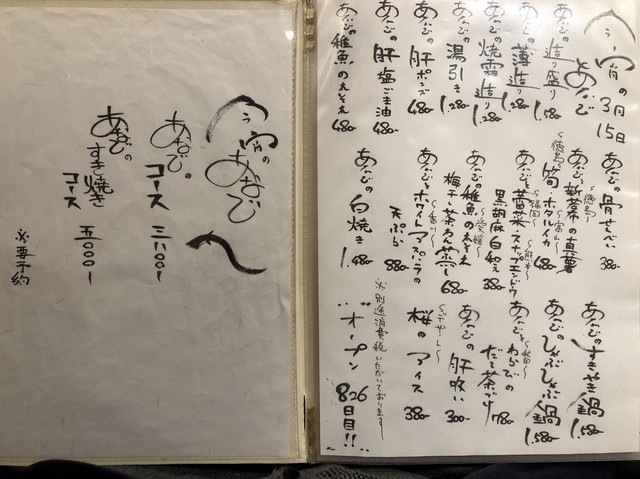 今宵のあなご
3月15日
あなごの造り盛り 1.580-
あなごの薄造り 1.280-
あなごの焼霜造り 1.280-
あなごの湯引き 1.280-
あなごの肝ポンズ 480-
あなごの肝塩ごま油 480-
あなごの稚魚のれそれ 480-
あなごの骨せんべい 380-
あなごと新若布の真薯
〜徳島〜
筍・ホタルイカ 680-
〜徳島〜 〜富山〜
あなごと蕾菜・スナップエンドウ
〜福岡〜 〜熊本〜
黒胡麻白和え 380-
あなごの稚魚のれそれ
〜愛媛〜
梅干し茶わん蒸し 680-
あなごとホワイトアスパラの
〜香川〜
天ぷら 880-
あなごの白焼き 1.480-
あなごのすきやき鍋 1.580-
あなごのしゃぶしゃぶ鍋 1.580-
あなごとわらびの
〜秋田〜
だし茶づけ 780-
あなごの肝吸い 300-
〜デザート〜
桜のアイス 380-
※別途消費税いただいております
"オープン826日目!!"
今宵のあなご
あなごのコース 三八〇〇-
あなごのすき焼きコース 五〇〇〇-
※要予約